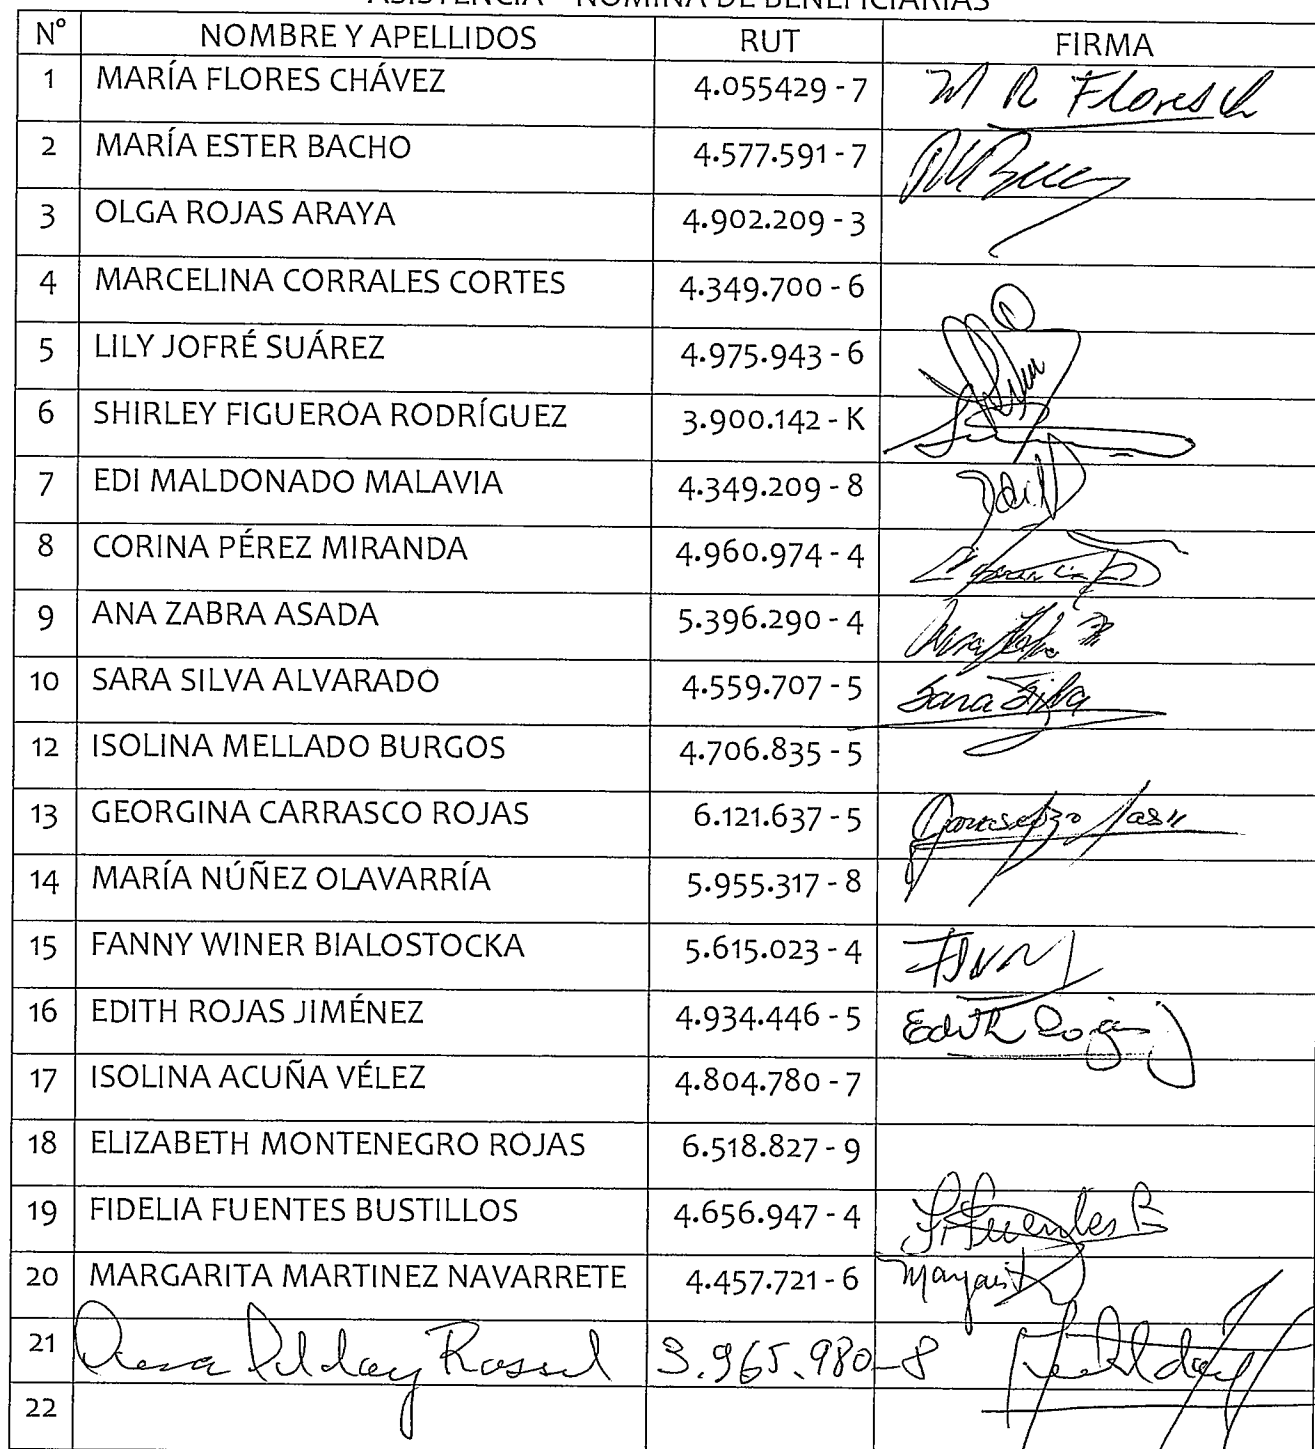 ASISTENCIA – NÓMINA DE BENEFICIARIAS
N° NOMBRE Y APELLIDOS RUT FIRMA
1 MARÍA FLORES CHÁVEZ 4.055429 - 7 M R Flores Ch
2 MARÍA ESTER BACHO 4.577.591 - 7
3 OLGA ROJAS ARAYA 4.902.209 - 3
4 MARCELINA CORRALES CORTES 4.349.700 - 6
5 LILY JOFRÉ SUÁREZ 4.975.943 - 6
6 SHIRLEY FIGUEROA RODRÍGUEZ 3.900.142 - K
7 EDI MALDONADO MALAVIA 4.349.209 - 8
8 CORINA PÉREZ MIRANDA 4.960.974 - 4
9 ANA ZABRA ASADA 5.396.290 - 4
10 SARA SILVA ALVARADO 4.559.707 - 5 Sara Silva
12 ISOLINA MELLADO BURGOS 4.706.835 - 5
13 GEORGINA CARRASCO ROJAS 6.121.637 - 5
14 MARÍA NÚÑEZ OLAVARRÍA 5.955.317 - 8
15 FANNY WINER BIALOSTOCKA 5.615.023 - 4
16 EDITH ROJAS JIMÉNEZ 4.934.446 - 5 Edith Rojas J
17 ISOLINA ACUÑA VÉLEZ 4.804.780 - 7
18 ELIZABETH MONTENEGRO ROJAS 6.518.827 - 9
19 FIDELIA FUENTES BUSTILLOS 4.656.947 - 4 F. Fuentes B
20 MARGARITA MARTINEZ NAVARRETE 4.457.721 - 6 Margarit
21 3.965.980-8
22